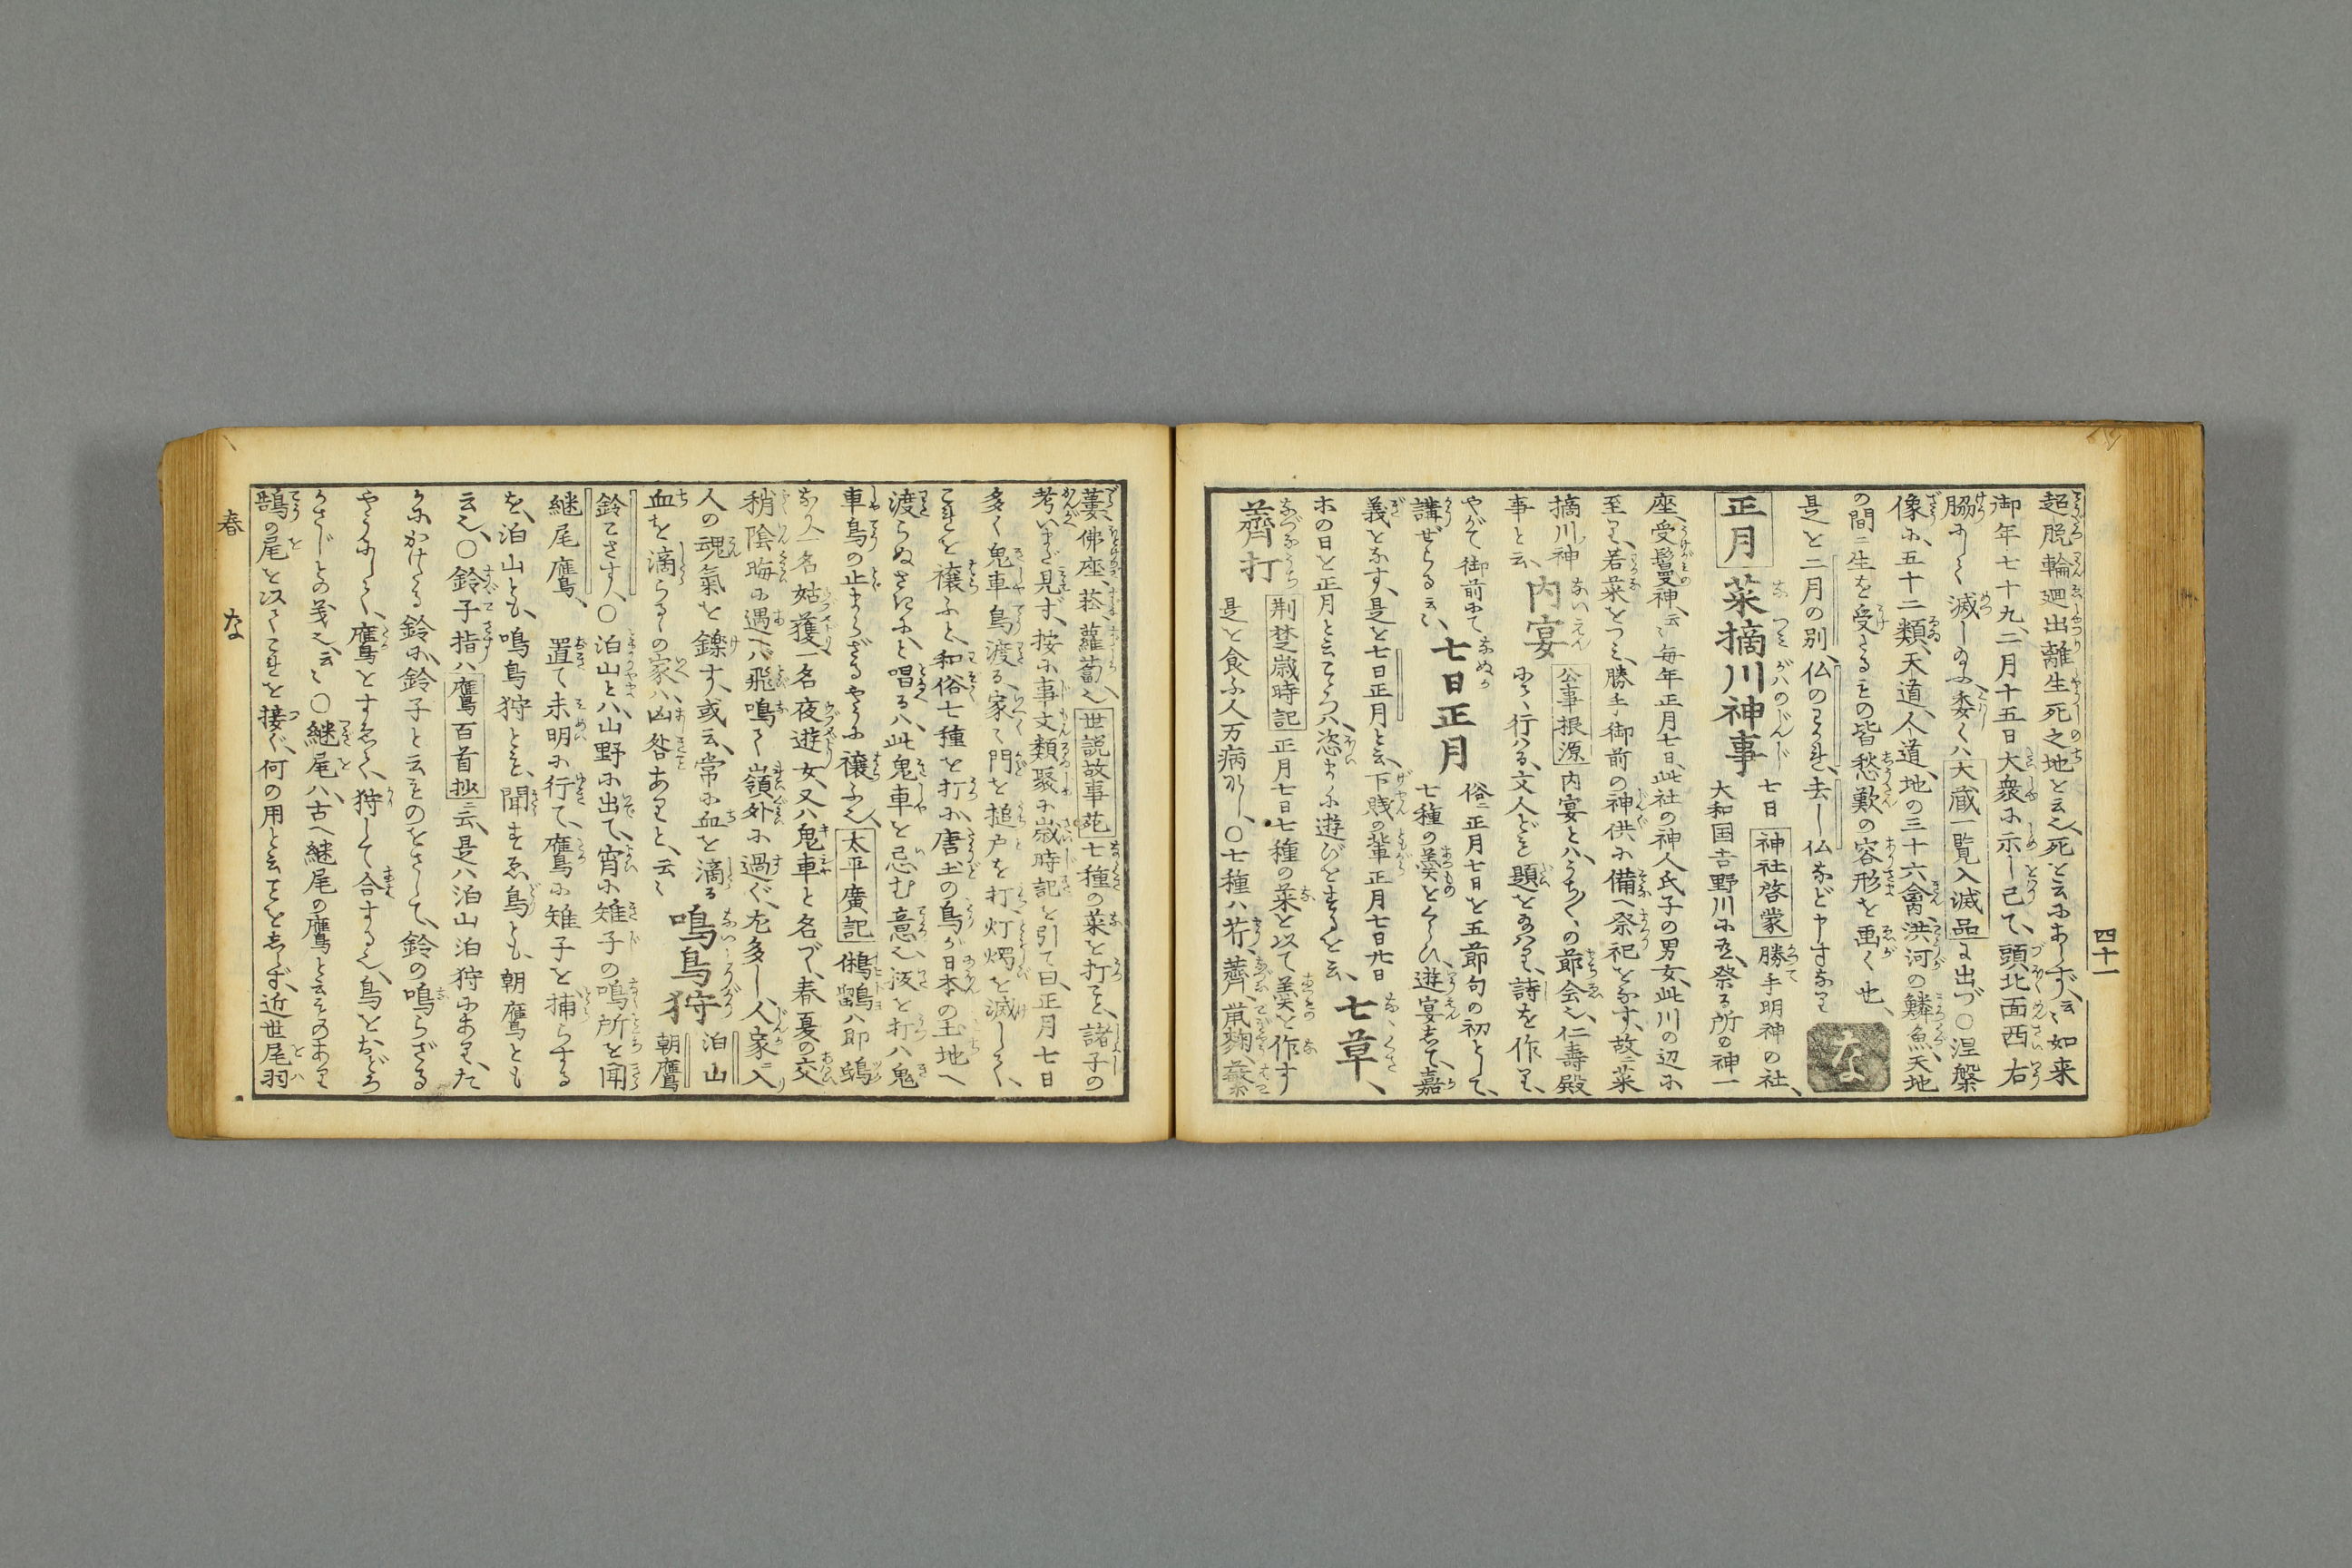 四十一
超脱輪廻出離生死之地と云也、死と云にあらず、云々如来
御年七十九、二月十五日大衆に示し已て、頭北面西右
脇にして滅し給ふ、委くは大蔵一覧入滅品に出づ〇涅槃
像に、五十二類、天道、人道、地の三十六禽、洪河の鱗魚、天地
の間ニ生を受くるもの皆愁歎の容形を画く也、
是を二月の別、仏のわかれ、去し仏など申すなり
な
正月
菜摘川神事
七日神社啓蒙勝手明神の社、
大和国吉野川に在、祭る所の神一
座、受鬘神、云々毎年正月七日、此社の神人氏子の男女、此川の辺に
至り、若菜をつミ、勝手御前の神供に備へ祭祀をなす、故ニ菜
摘川神
事と云、
内宴
公事根源内宴とハ、うち〱の節会也、仁壽殿
にて行はる、文人ども題をたまはり、詩を作り、
やがて御前にて
講ぜらる云々、
七日正月
俗ニ正月七日を五節句の初として、
七種の羹をくらひ、遊宴して、嘉
義となす、是を七日正月と云、下賎の輩正月七日廿日
ホの日を正月と云てハ、恣まに遊びをするを云、
七草、
薺打
荆楚歳時記正月七日七種の菜を以て羹を作す
是を食ふ人万病なし、〇七種ハ芹、薺、鼠麹、蘩
蔞、佛座、菘、蘿蔔也、世説故事苑七種の菜を打こと、諸子の
考いまだ見ず、按に事文類聚に歳時記を引て曰、正月七日
多く鬼車鳥渡る、家々門を搥戸を打、灯燭を滅して、
これを禳ふと、和俗七種を打に唐土の鳥が日本の土地へ
渡らぬさきにと唱るハ、此鬼車を忌む意也、板を打ハ鬼
車鳥の止まらざるやうに禳ふ也、太平廣記鵂鶹ハ即鴟
なり、一名姑獲一名夜遊女、又ハ鬼車と名づく、春夏の交
稍陰晦に遇へバ飛鳴て嶺外に過ぐ、尤多し、人家ニ入
人の魂氣を鑠す、或云、常に血を滴る
血を滴らるゝの家ハ、凶咎ありと、云々
鳴鳥狩
泊山
朝鷹
鈴てさす、〇泊山とハ山野に出て、宵に雉子の鳴所を聞
継尾鷹、置て未明に行て、鷹に雉子を捕らする
を、泊山とも、鳴鳥狩とも、聞すゑ鳥とも、朝鷹とも
云也、〇鈴子指ハ鷹百首抄ニ云、是ハ泊山泊狩にあり、た
かにかける鈴に、鈴子と云ものをさして、鈴の鳴らざる
やうにして、鷹をすゑて、狩して合する也、鳥をおどろ
かさじとの義也、云々〇継尾ハ、古へ継尾の鷹と云ものあり
鵠の尾を以てこれを接ぐ、何の用と云ことをしらず、近世尾羽
春
な